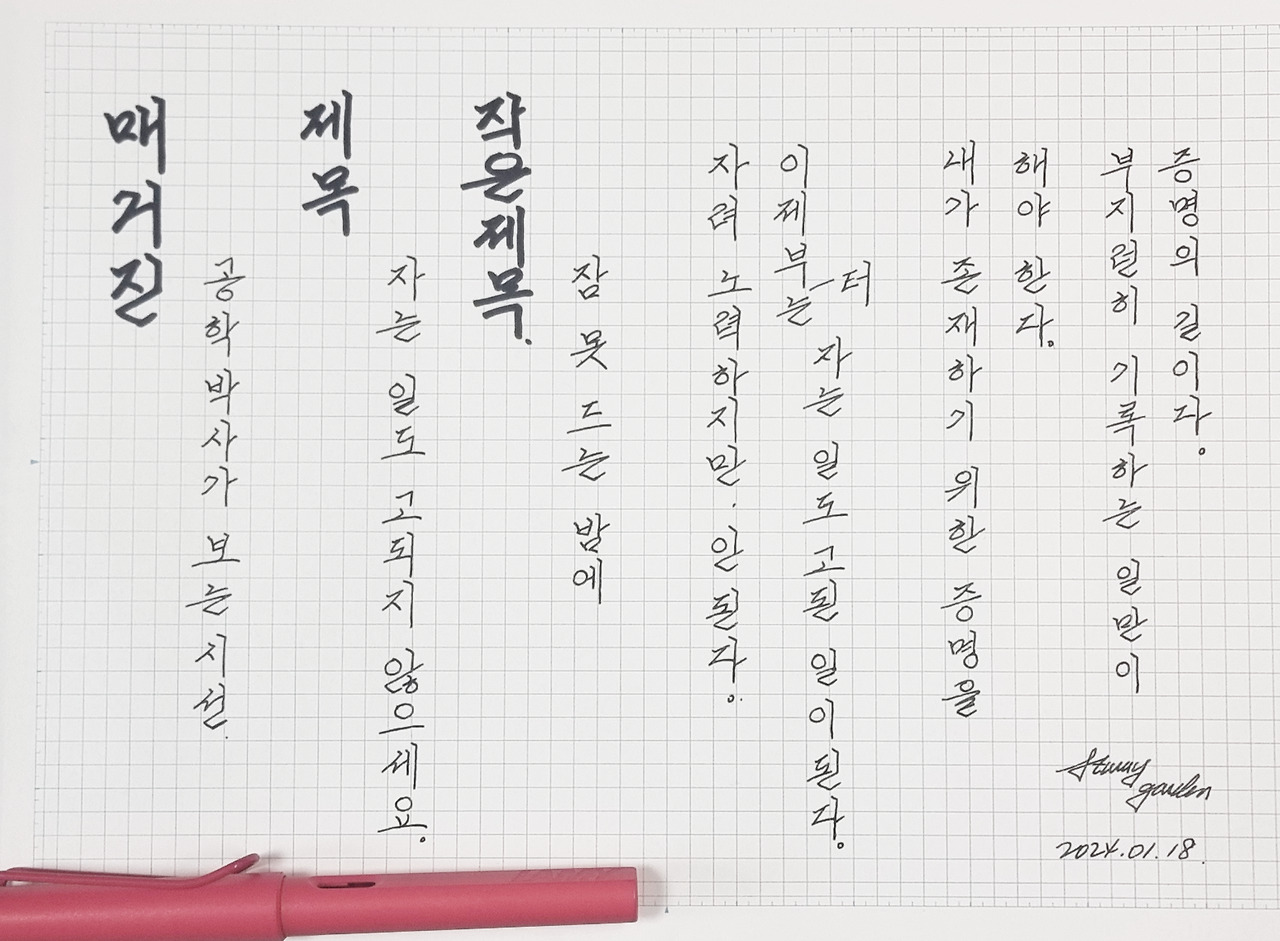 매거진
공학박사가 보는 시선.
제목
자는 일도 고되지 않으세요.
작은제목.
잠 못 드는 밤에
자려 노력하지만. 안 된다.
이제부터는 자는 일도 고된 일이 된다.
내가 존재하기 위한 증명을
해야 한다.
부지런히 기록하는 일만이
증명의 길이다.
garden
2024.01.18.